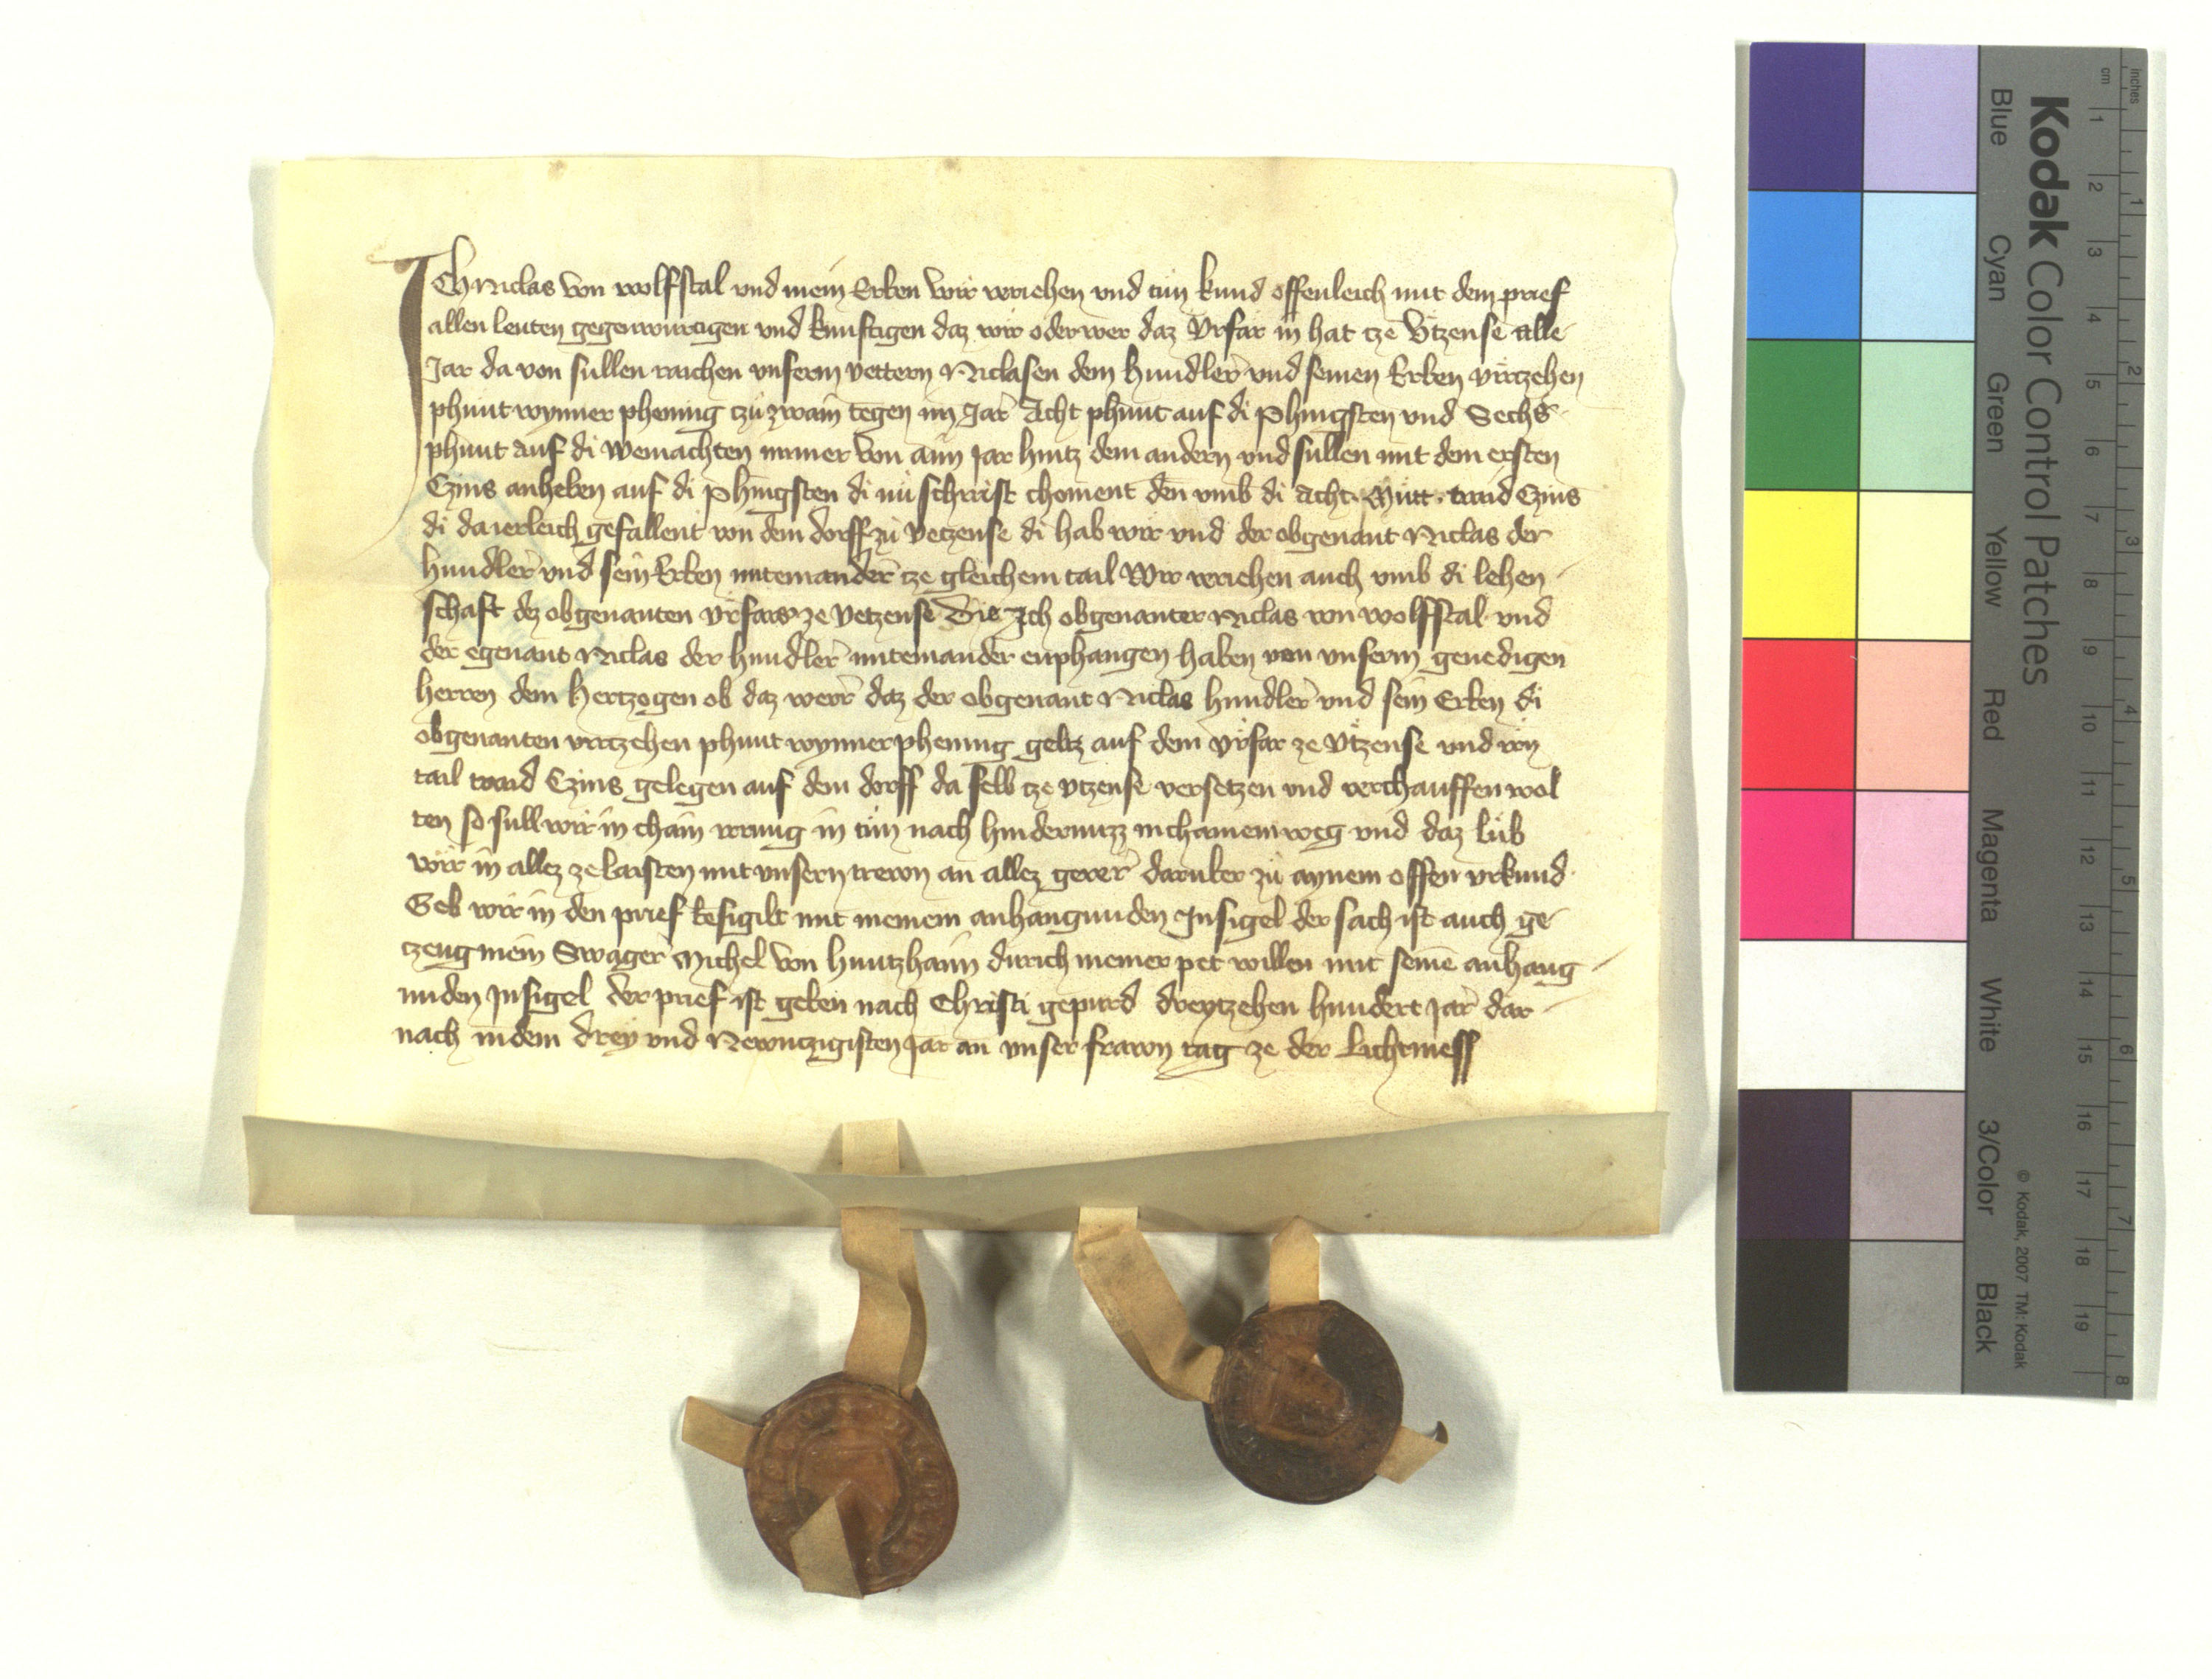 Ich Niclas von wolfstal und mein Erben wir veriehen und tun kund offenleich mit dem prief
allen leuten gegenwurtigen und kunftigen daz wir oder wer daz Vrfar in hat tze Vtzense alle
Jar da von sullen raichen unserm vettern Niclasen dem hundler und seinen Erben virtzehen
phunt wynner phening tzu zwain tegen im Jar Acht phunt auf di Phingsten und Sechs
phunt auf di Weinachten immer von aim Jar hintz dem andern und sullen mit dem ersten
Czins anheben auf di Phingsten di nu schirist choment den umb di acht Mutt traid Czins
di da ierleich gefallent von dem dorff zu Vetzense di hab wir und der obgenant Niclas der
hundler und sein Erben miteinander tze gleichem tail Wir veriehen auch umb di lehen
schaft dez obgenanten vrfars ze Vetzense Die Ich obgenanter Niclas von wolfstal und
der egenant Niclas der hundler miteinander enphangen haben von unserm genedigen
herren dem hertzogen ob daz werr daz der obgenant Niclas hundler und sein Erben di
obgenanten virtzehen phunt wynner phening geltz auf dem vrfar ze Vtzense und irn
tail traid Czins gelegen auf dem dorff da selb tze Vtzense versetzen und verchauffen wol
ten so sull wir in chain irrung in tun nach hindernuzz in chainem weg und daz lub
wir in allez ze laisten mit unsern trewn an allez gever daruber zu aynem offen urkund
Geb wir in den prief besigilt mit meinem anhangunden Insigel der sach ist auch ge
tzeug mein Swager Michel von huntzhaim durich meiner pet willen mit seine anhang
unden Insigel der prief ist geben nach Christi gepurd dreytzehen hundert Jar dar
nach in dem drey und Newntzigisten Jar an unser frawn tag ze der Lichtmess
Kodak Color Control Patches
Blue Cyan Green Yellow Red Magenta White 3/Color Black
© Kodak, 2007 TM: Kodak
inches 1 2 3 4 5 6 7 8
cm 1 2 3 4 5 6 7 8 9 10 11 12 13 14 15 16 17 18 19